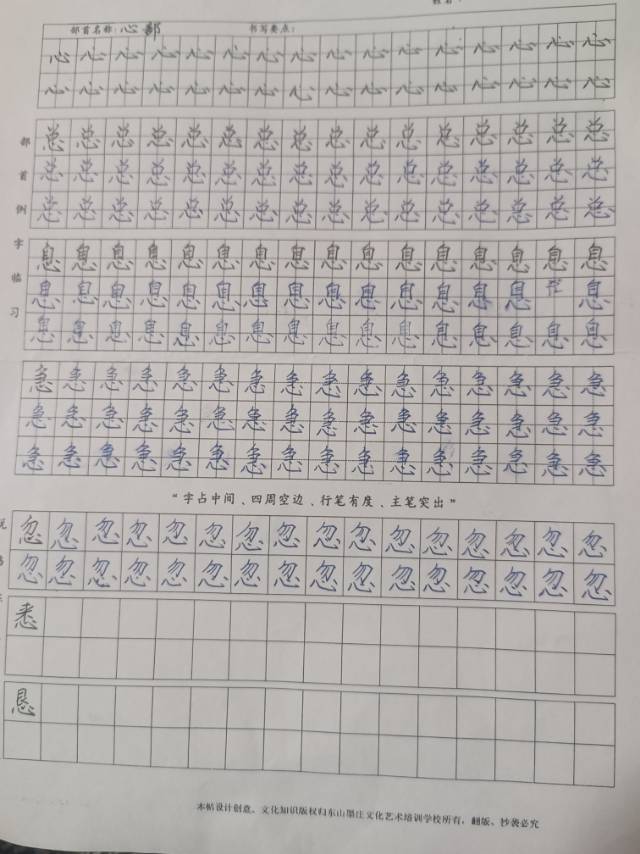 姓名
部首名称：心部 书写要点：
心心心心心心心心心心心心心心心心
心心心心心心心心心心心心心心心心
部首例字临习
总总总总总总总总总总总总总总总总
总总总总总总总总总总总总总总总总
总总总总总总总总总总总总总总总总
息息息息息息息息息息息息息息息息
息息息息息息息息息息息息息息息
息息息息息息息息息息息息息息息息
急急急急急急急急急急急急急急急急
急急急急急急急急急急急急急急急急
急急急急急急急急急急急急急急急急
“字占中间、四周空边、行笔有度、主笔突出”
忽忽忽忽忽忽忽忽忽忽忽忽忽忽忽忽
忽忽忽忽忽忽忽忽忽忽忽忽忽忽忽忽
悉
恳
本帖设计创意、文化知识版权归东山墨庄文化艺术培训学校所有，翻版、抄袭必究